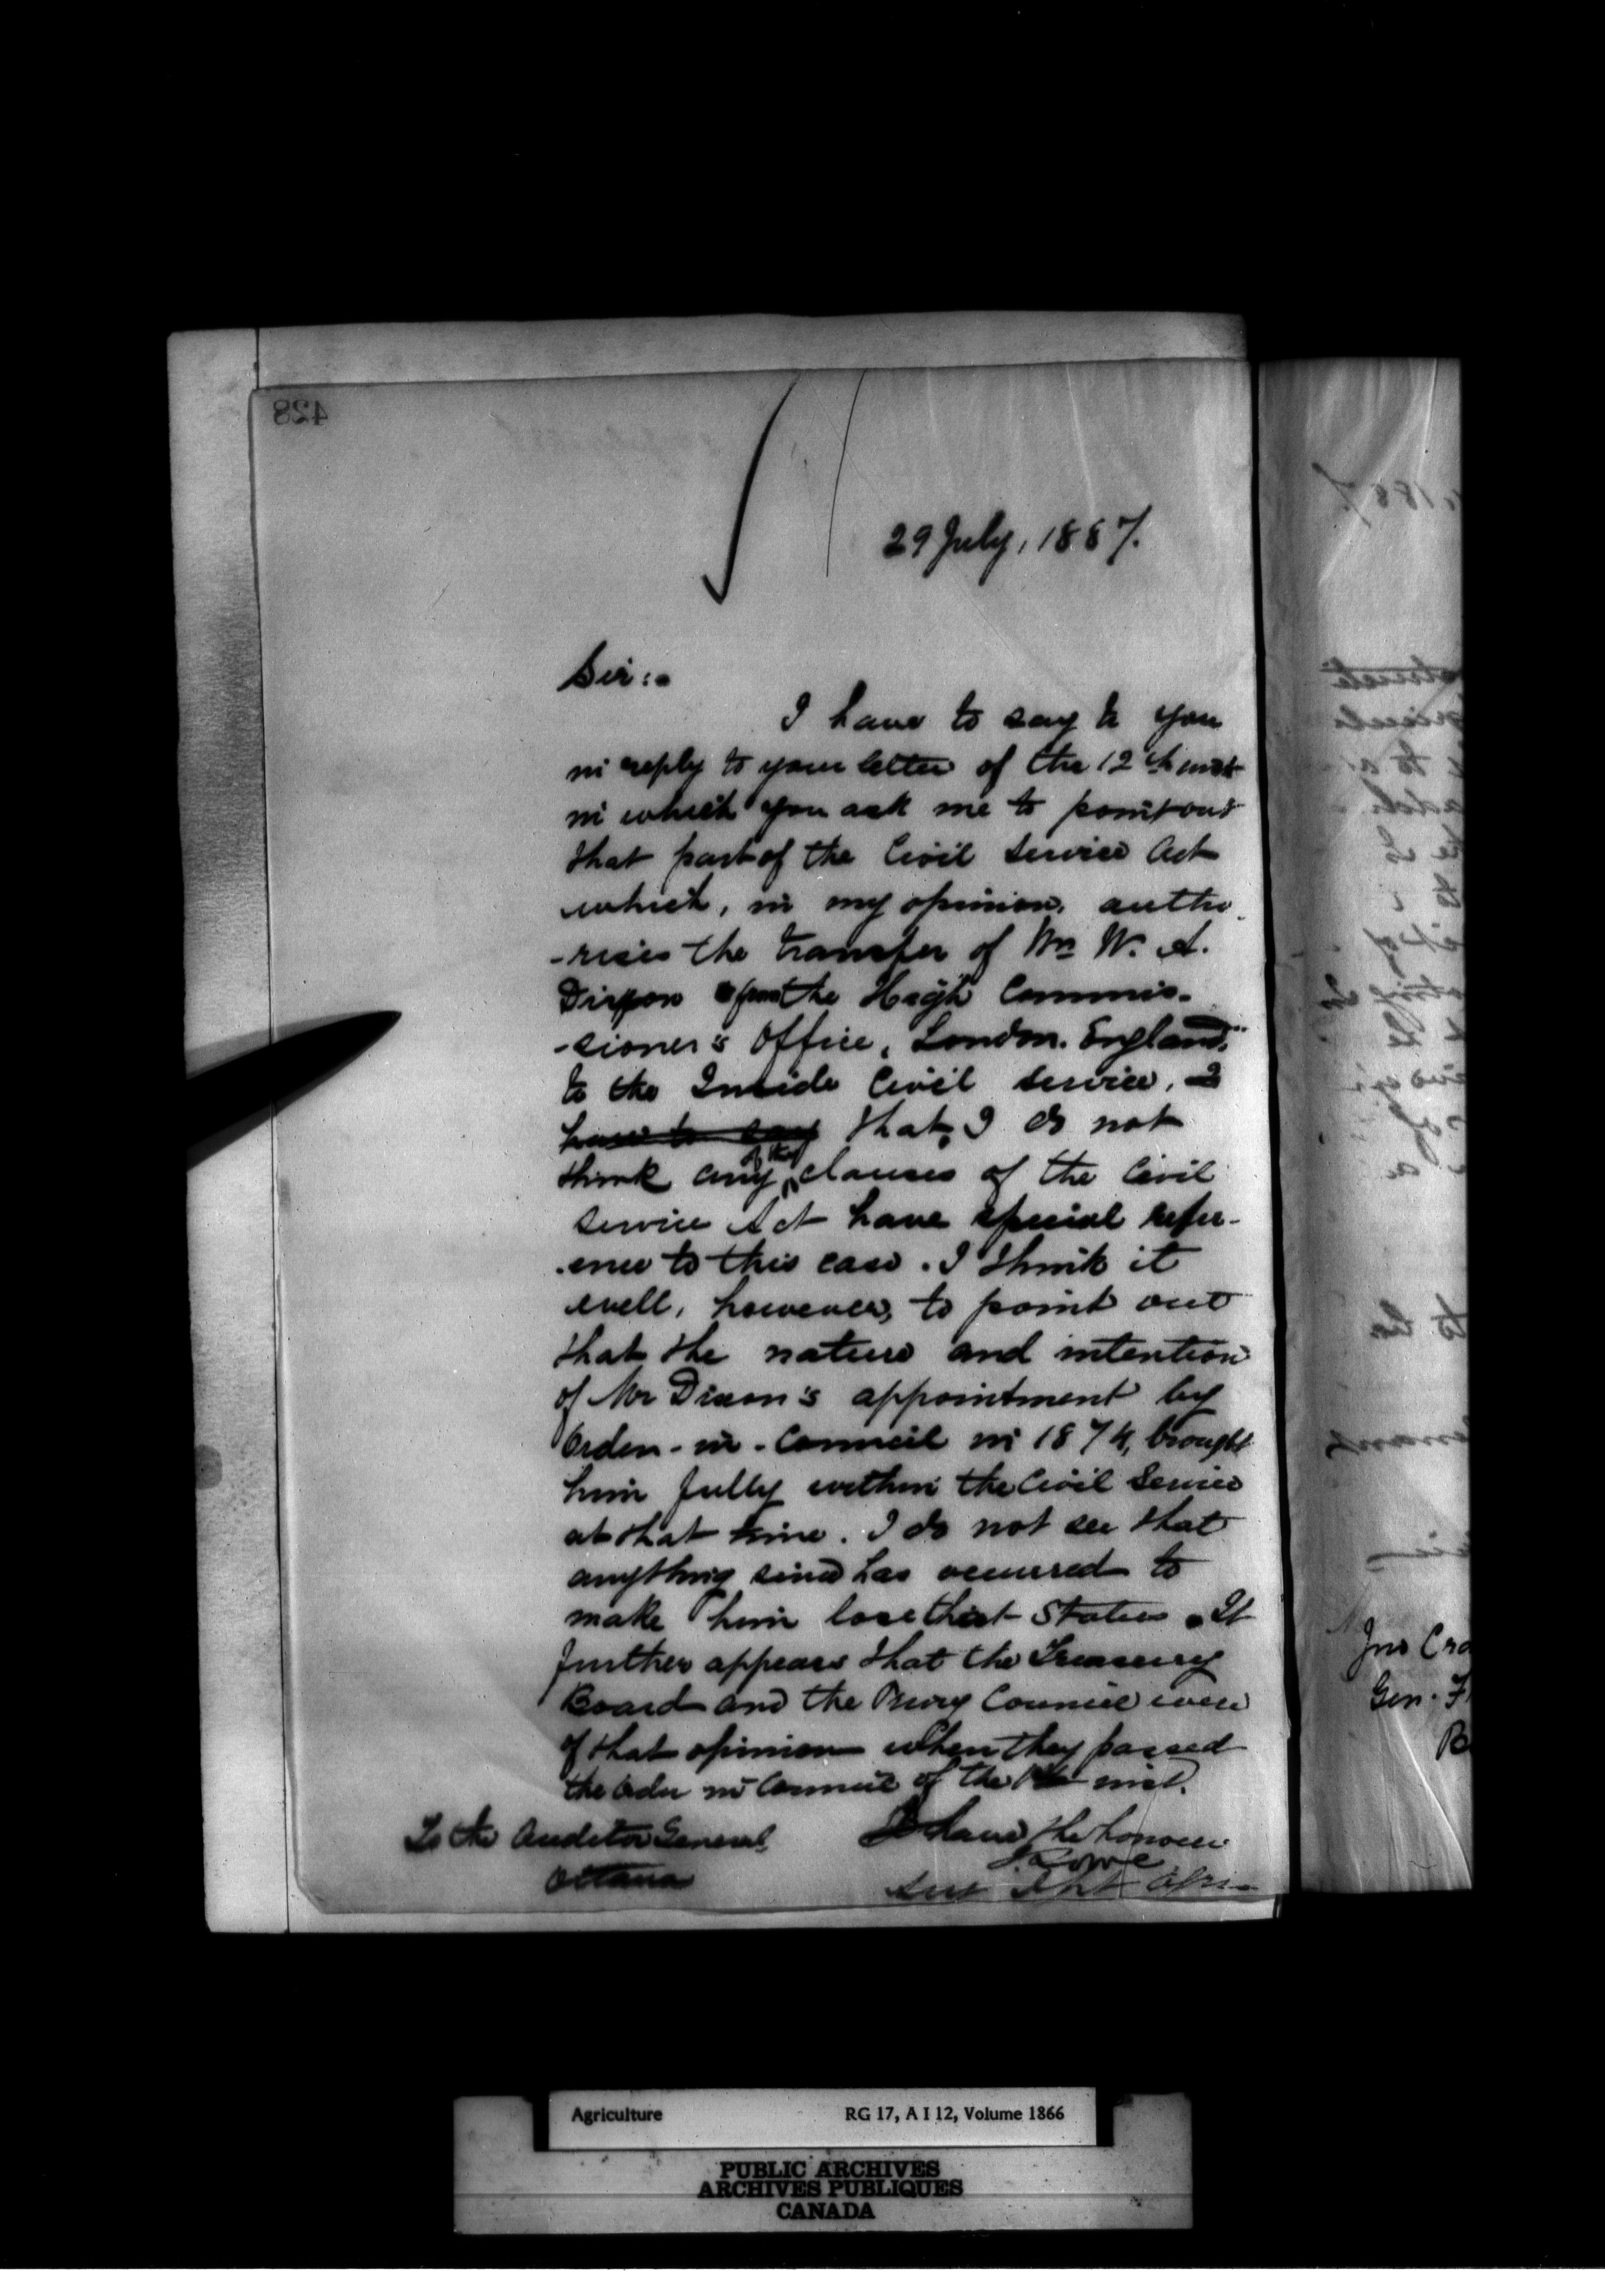 428
29 July, 1887.
Sir:-
I have to say to you
in reply to your letter of the 12th inst
in which you ask me to point out
that part of the Civil Service Act
which, in my opinion, autho
-rises the transfer of Mr W. A.
Dixon from the High Commis-
-sioner's Office, London, England,
to the Inside Civil Service, I
have to say that, I do not
think any of the clauses of the Civil
Service Act have special refer-
-ence to this case. I think it
well, however, to point out
that the nature and intention
of Mr Dixon's appointment by
Order-in-Council in 1874, brought
him fully within the Civil Service
at that time. I do not see that
anything since has occurred to
make him lose that Status. It
further appears that the Treasury
Board and the Privy Council were
of that opinion when they passed
the Order in Council of the inst.
To the Auditor General,
Ottawa
I have the honour
J. Lowe
Dept Agri
Jno Cra
Gen. F
B
Agriculture RG 17, A I 12, Volume 1866
PUBLIC ARCHIVES
ARCHIVES PUBLIQUES
CANADA